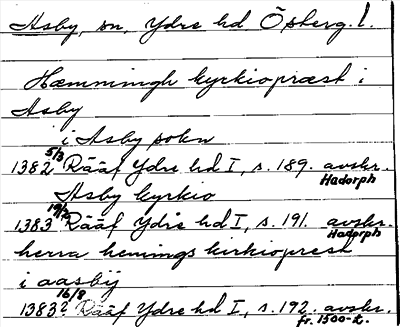 Asby, sn, Ydre hd Österg. l.
Hæmmingh kyrkiopræst i
Asby
i Asby sokn
1382 5/3 Rääf Ydre hd I, s. 189. avskr. Hadorph
Asby kyrkio
1383 Rääf Ydre hd I, s. 191. avskr. Hadorph
herra hemings kirkioprest
i aasbÿ
1383 16/8 Rääf Ydre hd I, s. 192. avskr. fr. 1500-t.